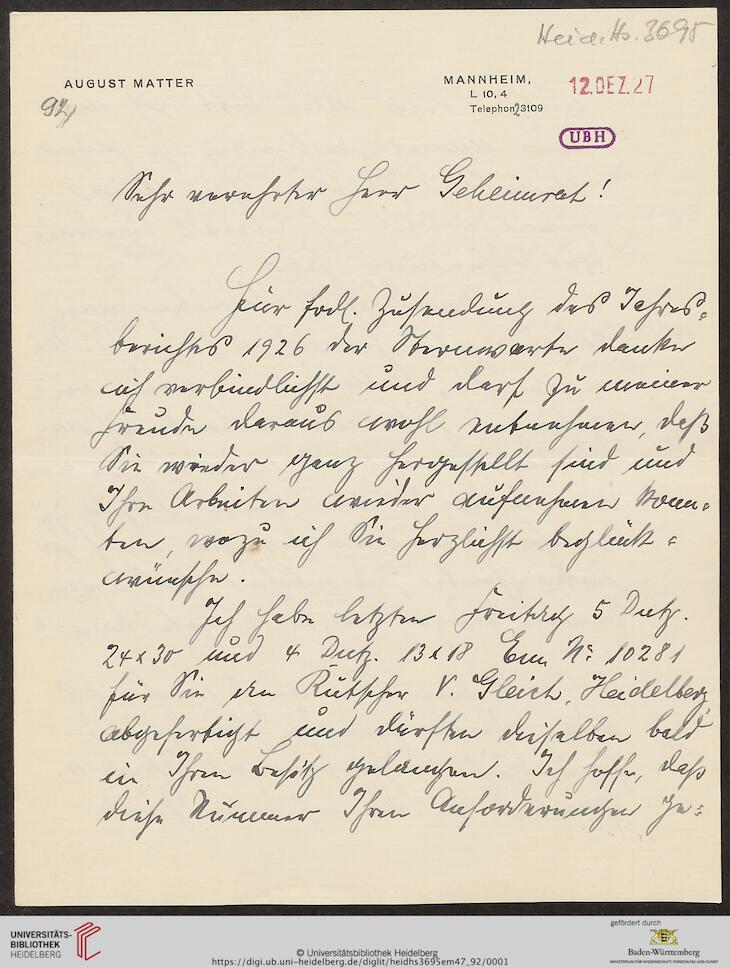 Heid. Hs. 3695
AUGUST MATTER
MANNHEIM,
L 10, 4
Telephon 23109
12. DEZ. 27
92
UBH
Sehr verehrter Herr Geheimrat!
Für frdl. Zusendung des Jahres-
berichtes 1926 der Sternwarte danke
ich verbindlichst und darf zu meiner
Freude daraus wohl entnehmen, daß
Sie wieder ganz hergestellt sind und
Ihre Arbeiten wieder aufnehmen konn-
ten, wozu ich Sie herzlichst beglück-
wünsche.
Ich habe letzten Freitag 5 Dutz.
24x30 und 4 Dutz. 13x18 Em. No 10281
für Sie an Kutscher V. Gleich, Heidelberg
abgefertigt und dürften dieselben bald
in Ihren Besitz gelangen. Ich hoffe, daß
diese Nummer Ihren Anforderungen ge-
UNIVERSITÄTS-
BIBLIOTHEK
HEIDELBERG
© Universitätsbibliothek Heidelberg
https://digi.ub.uni-heidelberg.de/diglit/heidhs3695em47_92/0001
gefördert durch
Baden-Württemberg
MINISTERIUM FÜR WISSENSCHAFT, FORSCHUNG UND KUNST